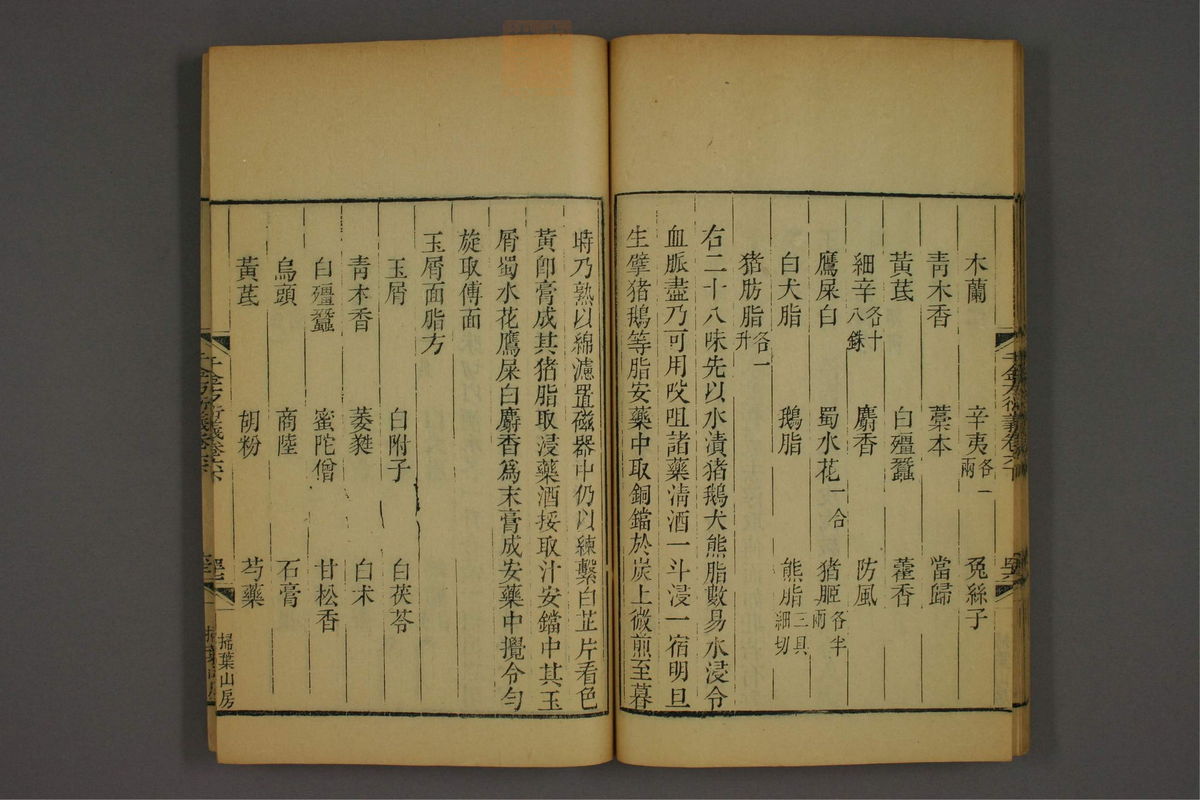 木蘭 辛夷各一兩 兔絲子
青木香 藁本 當歸
黃芪 白殭蠶 藿香
細辛各十八銖 麝香 防風
鷹屎白 蜀水花一合 猪胵各半兩
白犬脂 鵝脂 熊脂三具細切
猪肪脂各一升
右二十八味先以水漬猪鵝犬熊脂數易水浸令
血脈盡乃可用㕮咀諸藥清酒一斗浸一宿明旦
生擘猪鵝等脂安藥中取銅鐺於炭上微煎至暮
時乃熟以綿濾置磁器中仍以練繫白芷片看色
黃卽膏成其猪脂取浸藥酒挼取汁安鐺中其玉
屑蜀水花鷹屎白麝香為末膏成安藥中攪令勻
旋取傅面
玉屑面脂方
玉屑 白附子 白茯苓
青木香 萎蕤 白朮
白殭蠶 蜜陀僧 甘松香
烏頭 商陸 石膏
黃芪 胡粉 芍藥
掃葉山房